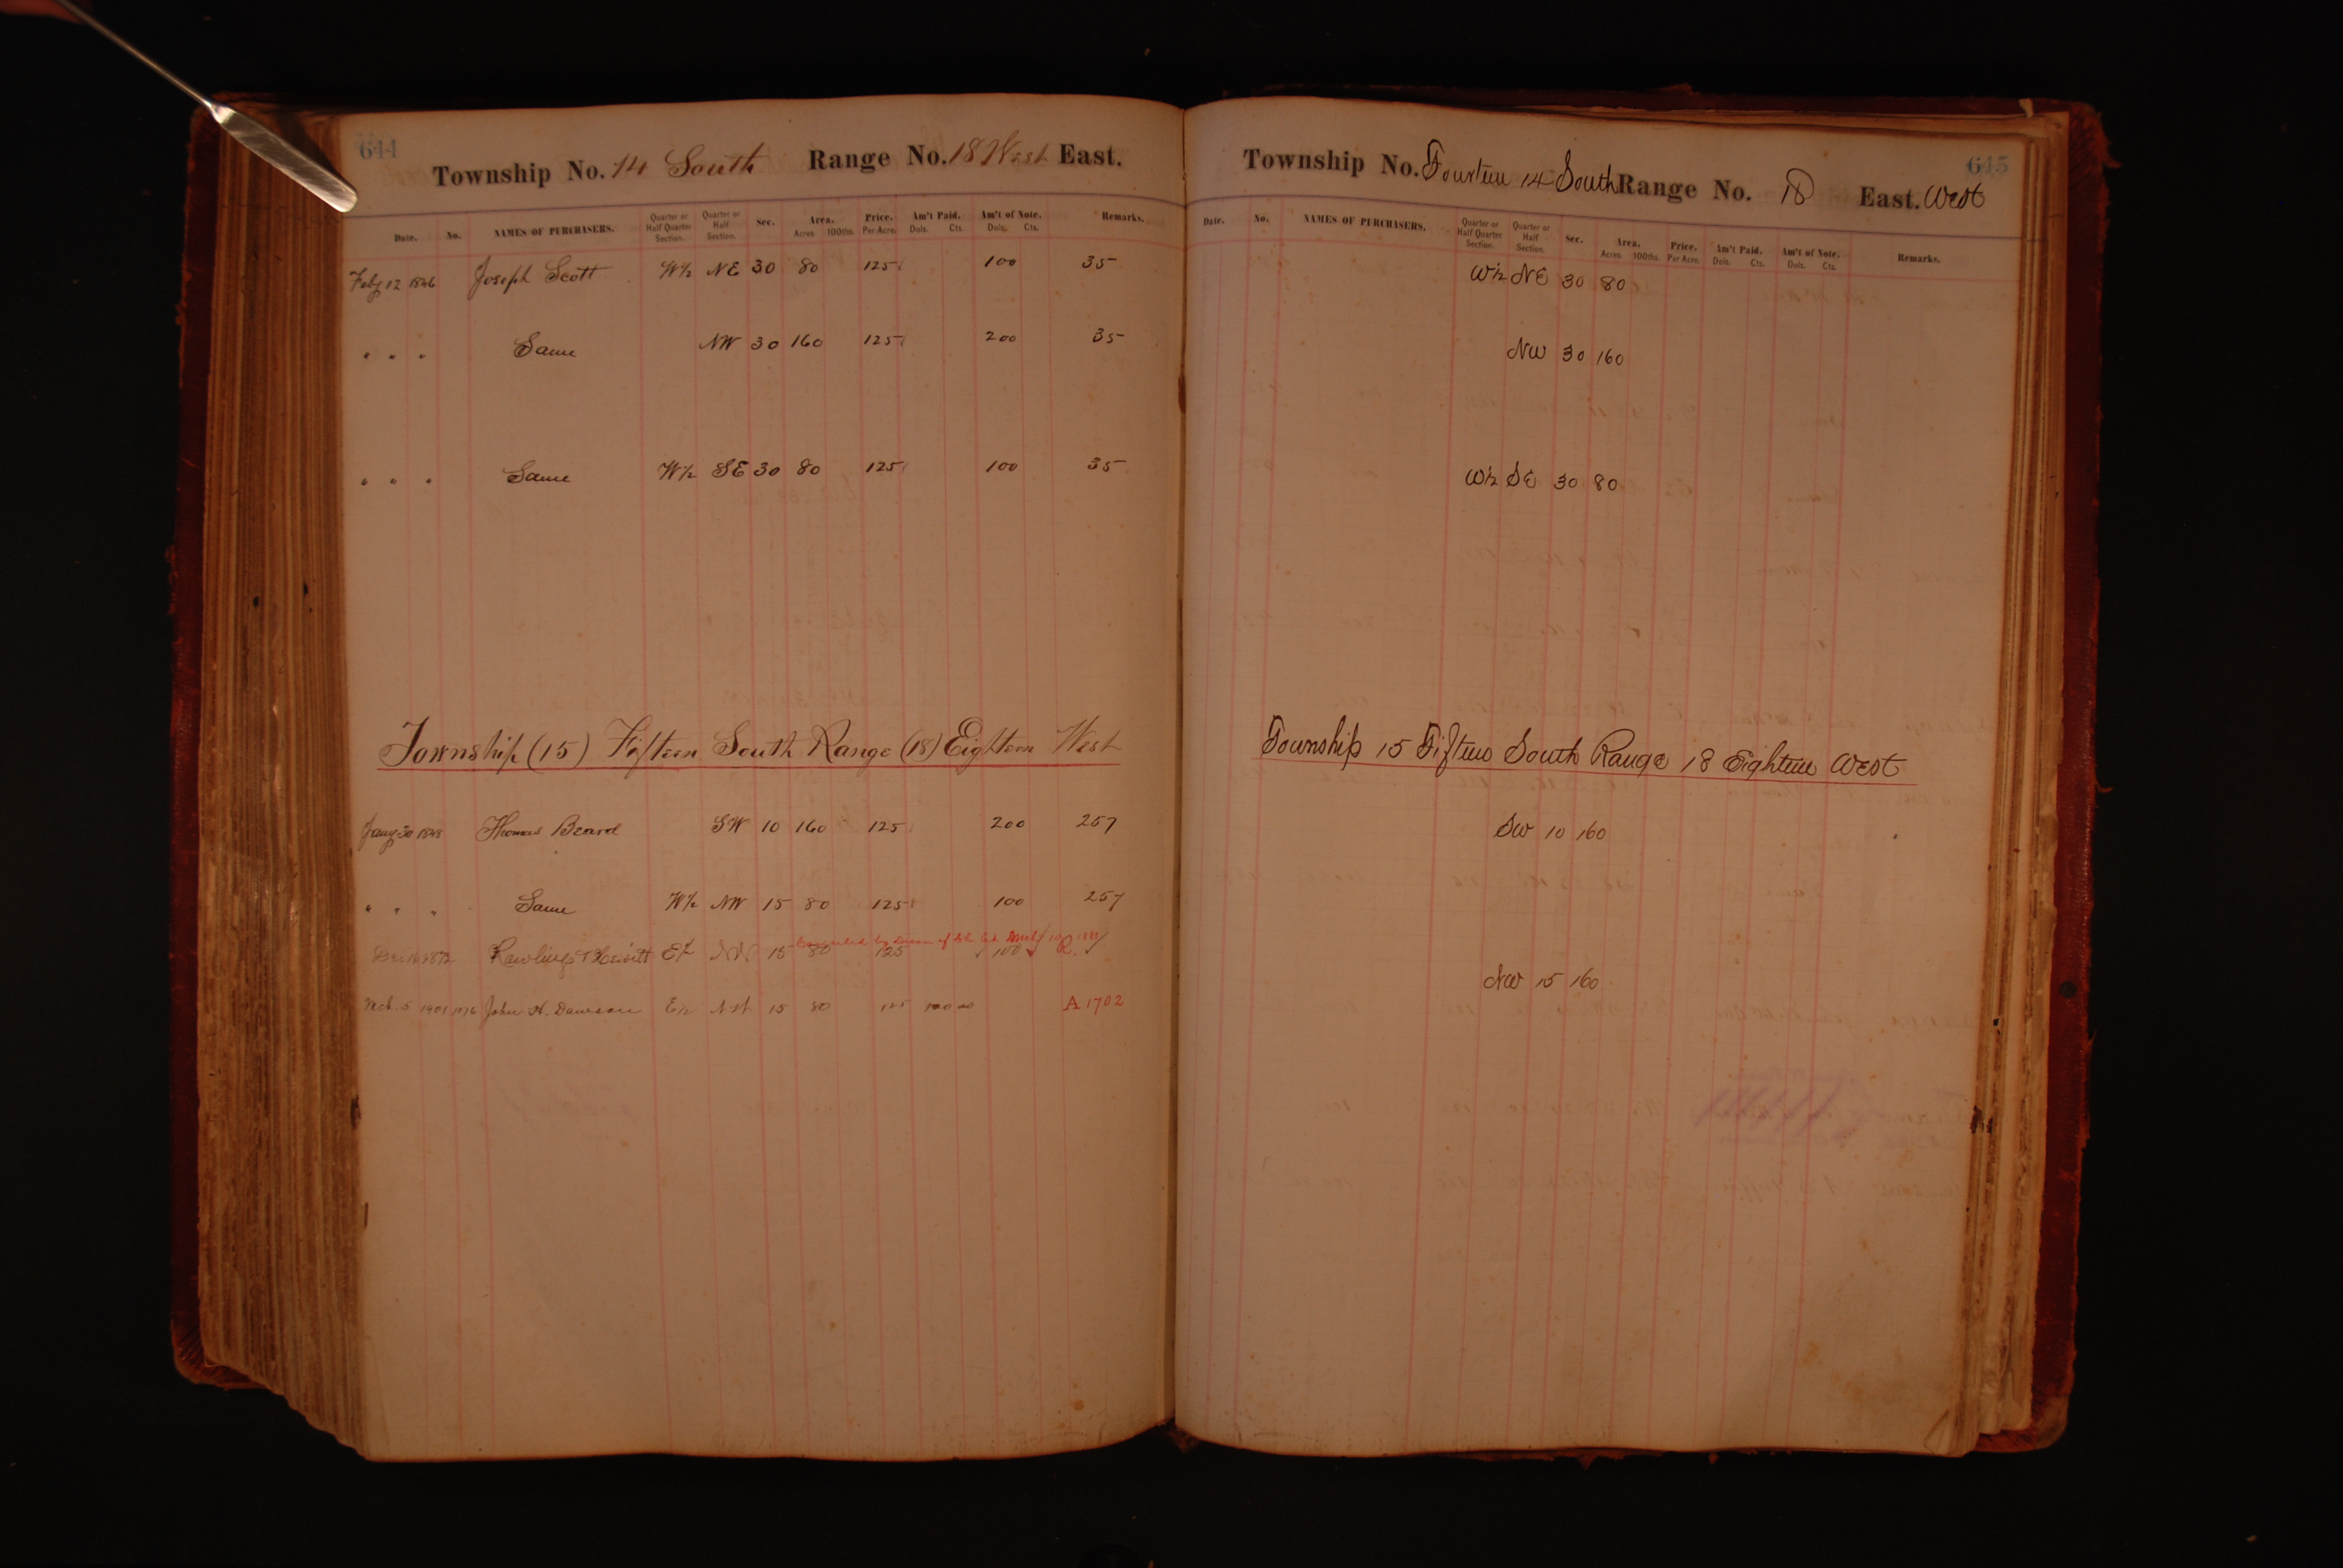 644
Township No. 14 South Range No. 18 West East.
Date. No. NAMES OF PURCHASERS. Quarter or Half Quarter Section. Quarter or Half Section. Sec. Area. Acres 100ths. Price. Per Acre. Am't Paid. Dols. Cts. Am't of Note. Dols. Cts. Remarks.
Feby 12 1846 Joseph Scott W½ NE 30 80 125 100 35
" " " Same NW 30 160 125 200 35
" " " Same W½ SE 30 80 125 100 35
Township (15) Fifteen South Range (18) Eighteen West
Jany 30 1848 Thomas Beard SW 10 160 125 200 257
" " " Same W½ NW 15 80 125 100 257
by of
Dec 16 1872 Rawlings & Hewitt E½ NW 15 80 125 100 R.
Mch. 5 1901 1076 John H. Dawson E½ NW 15 80 125 100 00 A 1702
645
Township No. Fourteen 14 South Range No. 18 East. West
Date. No. NAMES OF PURCHASERS. Quarter or Half Quarter Section. Quarter or Half Section. Sec. Area. Acres 100ths. Price. Per Acre. Am't Paid. Dols. Cts. Am't of Note. Dols. Cts. Remarks.
W½ NE 30 80
NW 30 160
W½ SE 30 80
Township 15 Fifteen South Range 18 Eighteen West
SW 10 160
NW 15 160